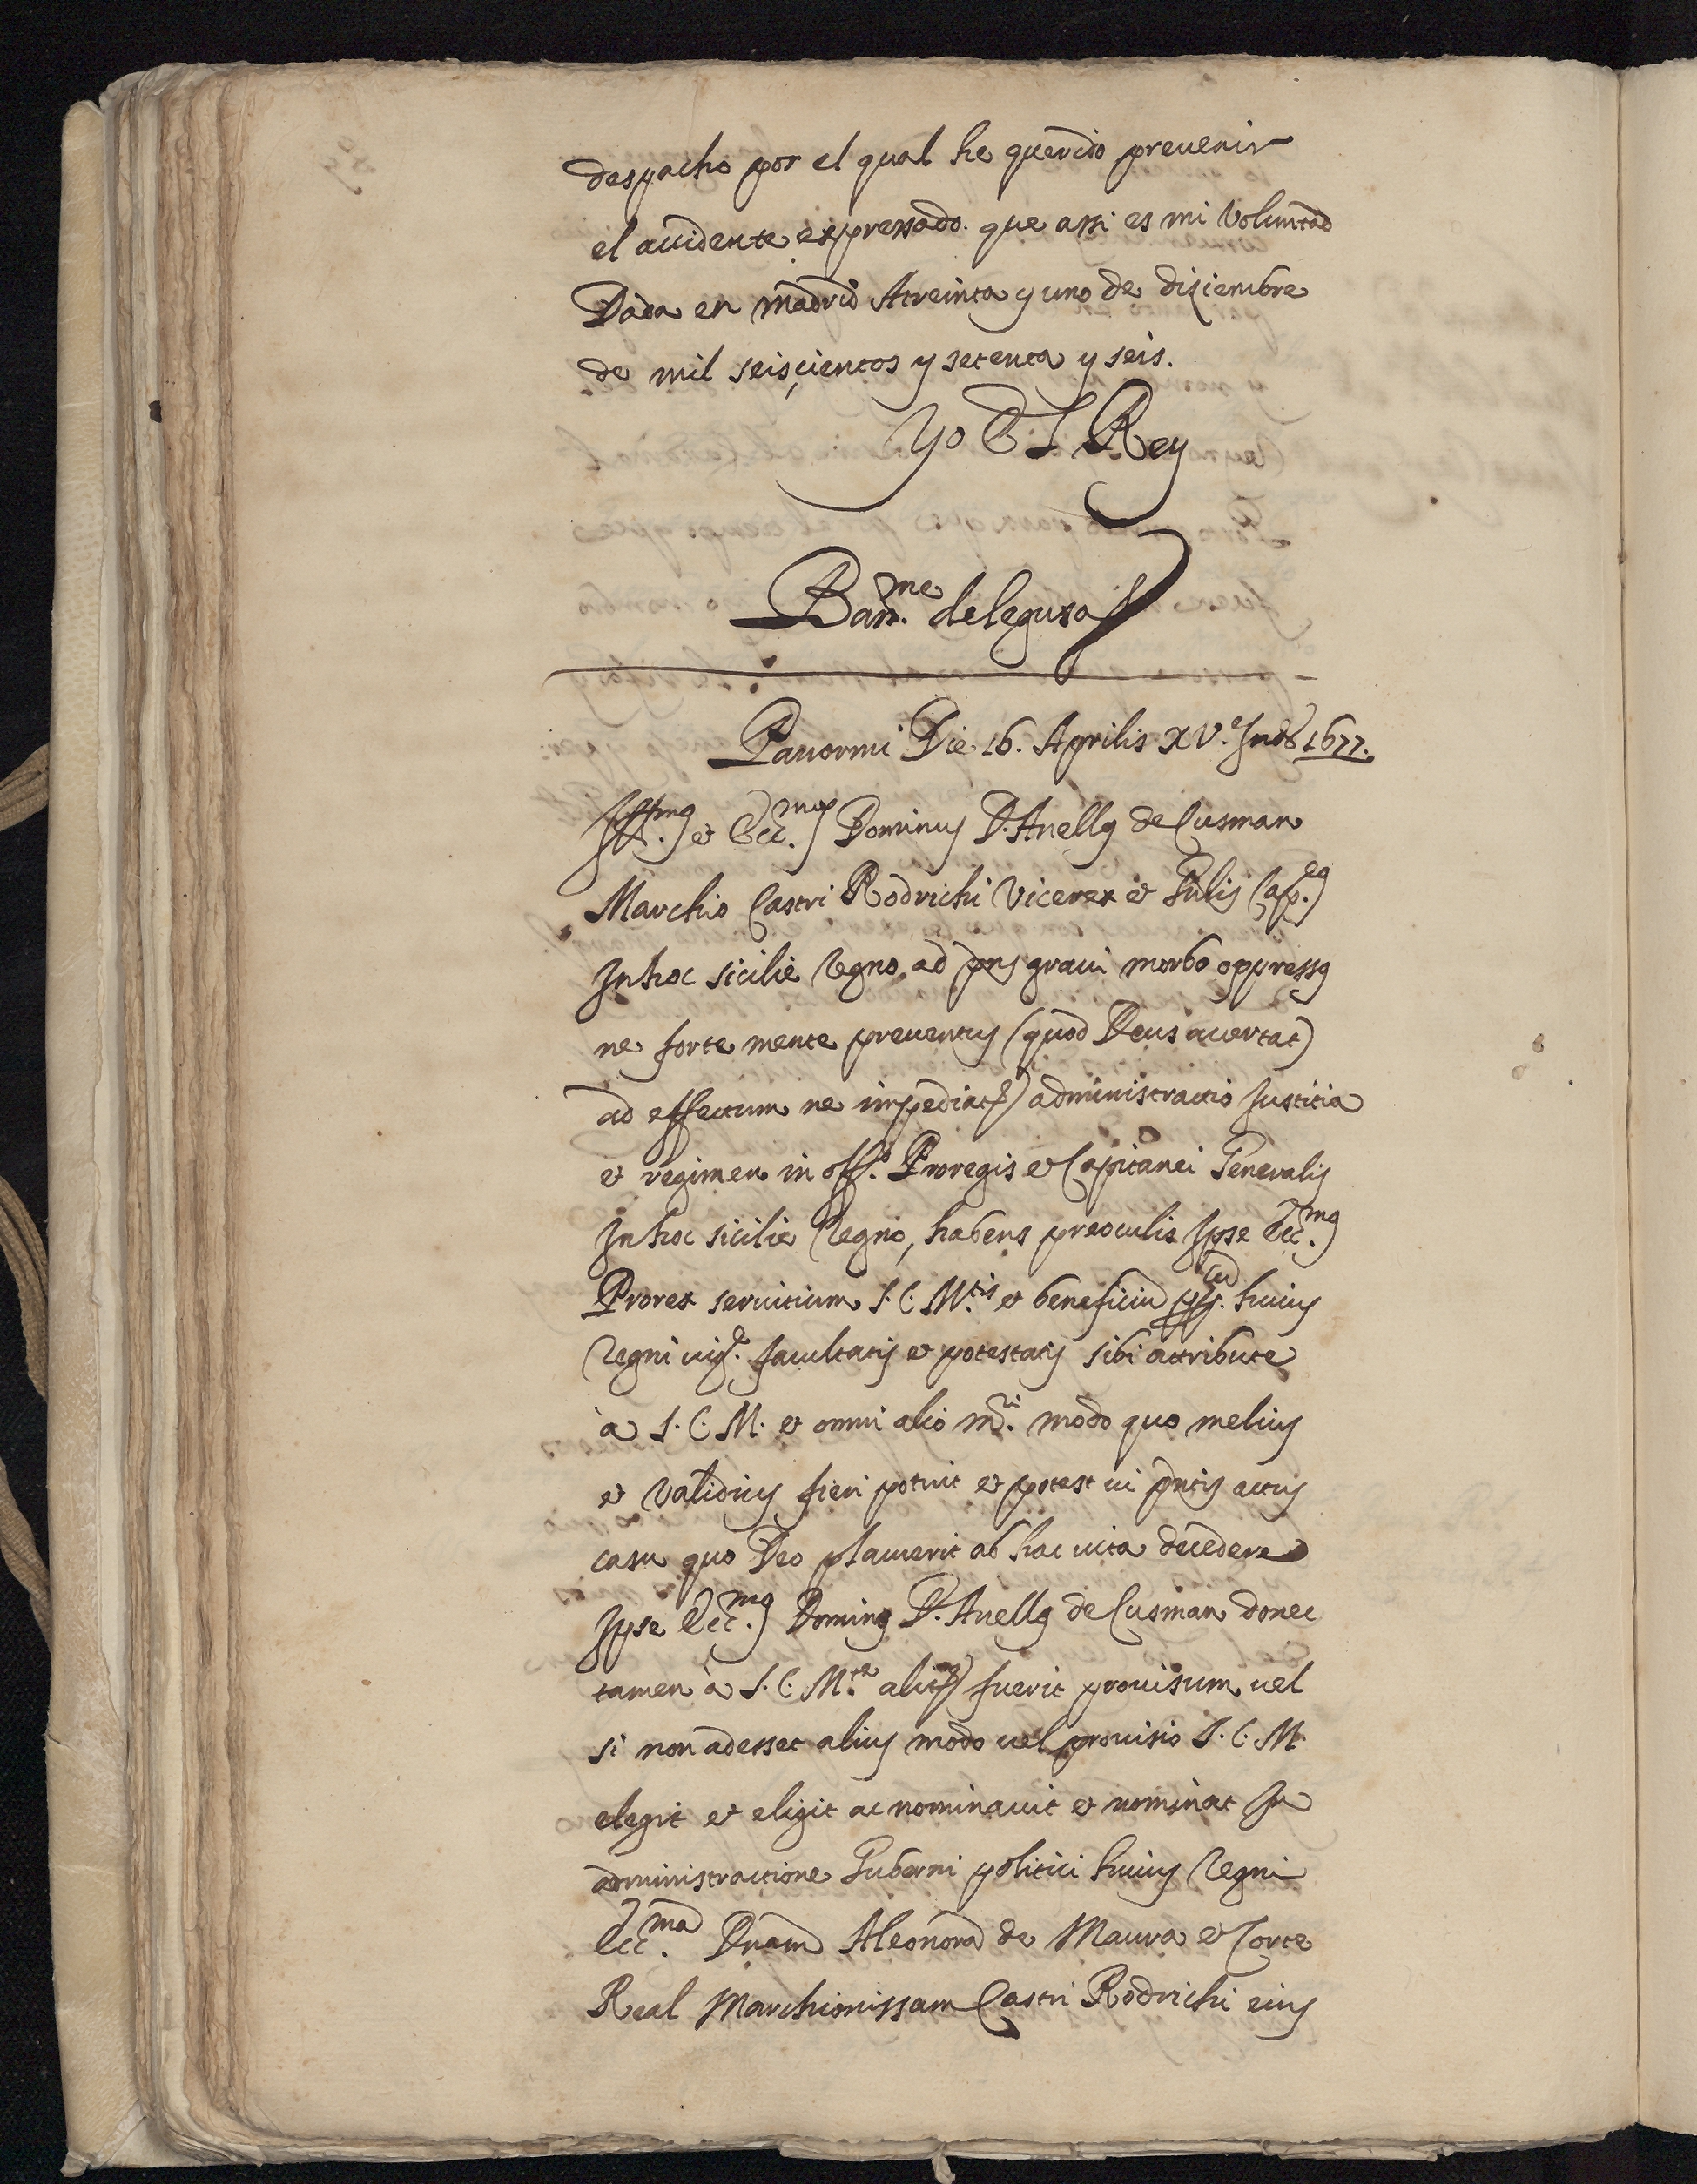 despacho por el qual he querido preuenir
el accidente expressado. que assi es mi Voluntad
Dada en Madrid Atreinta y uno de diziembre
de mil seisçientos y setenta y seis.
Yo El Rey
Bar.me delegusa
Panormi Die 16. Aprilis XV.e Ind. 1677.
Ill.mus et Ecc.mus Dominus D. Anellus de Cusman
Marchio Castri Rodrichi Vicerex et Gnlis Cap.eus
In hoc sicilie Regno, ad pns graui morbo oppressus
ne forte mente preuentus (quod Deus auertat)
ad effectum ne impediatur administractio Justitia
et regimen in off.o Proregis et Capitanei Generalis
In hoc sicilie Regno, habens preoculis Ipse Ecc.mus
Prorex seruitium S. C. M.tis et beneficiu pp.cu huius
Regni uig.e facultatis et potestatis sibi attribute
à S. C. M. et omni alio m.ri modo quo melius
et Validius fieri potuit et potest ui pntis actus
casu quo Deo placuerit ab hac uita decedere
Ipse Ecc.mus Dominus D. Anellus de Cusman donec
tamen à S. C. M.te aliter fuerit prouisum uel
si non adesset alius modo uel prouisio S. C. M
elegit et eligit ac nominauit et nominat In
administractione Guberni politici huius Regni
Ecc.ma Dnam Aleonora de Maura et Corte
Real Marchionissam Castri Rodrichi eius